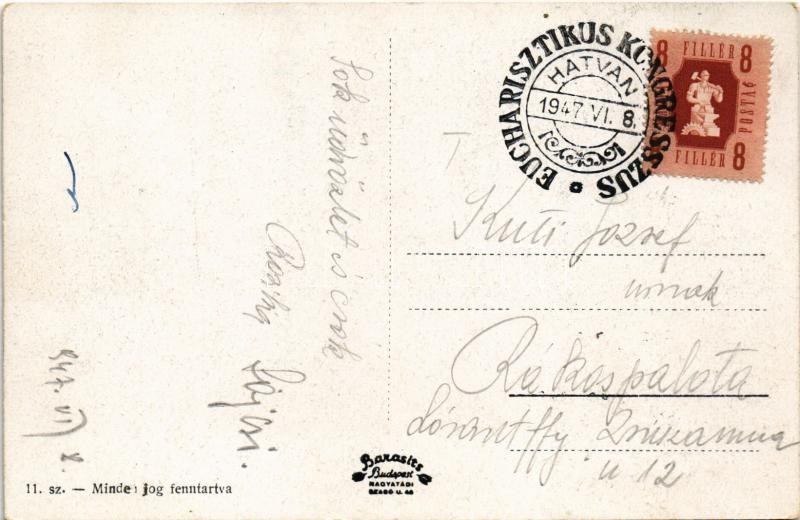 EUCHARISZTIKUS KONGRESSZUS
HATVAN
1947 VI. 8.
8 FILLÉR 8
POSTA
FILLÉR 8
Sok üdvözlet és csók
947. VI 8.
T
Kuti József
urnak
Rákospalota
Lórántffy Zsuzsanna
u 12
Barasits
Budapest
NAGYATÁDI
SZABÓ U. 46
11. sz. — Minden jog fenntartva